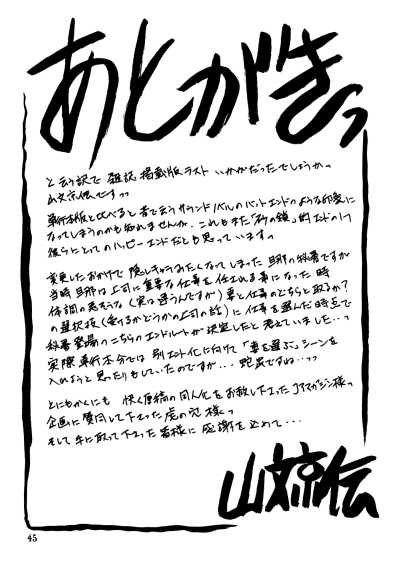 あとがきっ
と云う訳で 雑誌掲載版ラスト いかがだったでしょうかっ
山文京伝ですっっ
単行本版と比べると 昔で云うサウンドノベルのバットエンドのような印象に
なってしまうのかも知れませんが、これもまた「砂の鎖」的エンドの1つ
彼らにとってのハッピーエンドだとも思っていますっ
変更したおかげで 隠しキャラみたくなってしまった 旦那の秘書ですが
当時 旦那は上司に重要な仕事を任される事になった時
体調の悪そうな(実は違うんですが)妻と仕事のどちらと取るか?
の選択枝(受けるかどうかの上司の話)に仕事を選んだ時点で
秘書登場のこちらのエンドルートが決定したと考えていました…っ
実際 単行本分では 別エンド化に向けて「妻を選ぶ」シーンを
入れようと思ったりもしていたのですが… 蛇足ですね…っっ
とにもかくにも 快く原稿の同人化をお許し下さったJアマガジン様っ
企画に賛同して下さった虎の穴様っ
そして手に取って下さった皆様に 感謝を込めて…
山文京伝
45